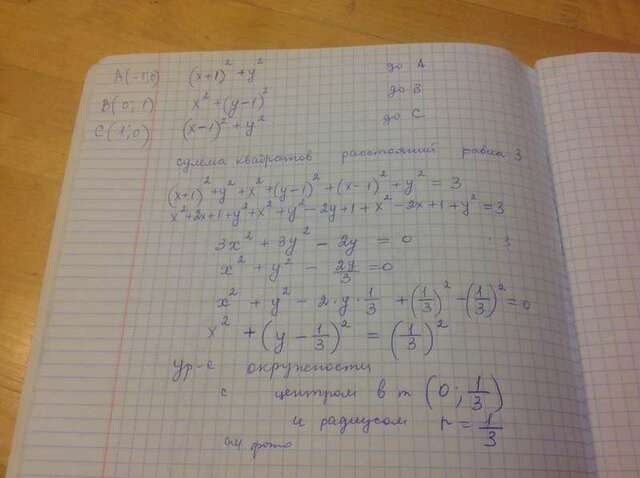 A(-1;0) (x+1)² + y² до A
B(0; 1) x² + (y-1)² до B
C(1;0) (x-1)² + y² до C
сумма квадратов расстояний равна 3
(x+1)² + y² + x² + (y-1)² + (x-1)² + y² = 3
x²+2x+1+y²+x²+y²-2y+1+x²-2x+1+y²=3
3x² + 3y² - 2y = 0 :3
x² + y² - 2y/3 = 0
x² + y² - 2·y·1/3 + (1/3)² - (1/3)² = 0
x² + (y - 1/3)² = (1/3)²
ур-е окружности
с центром в т (0; 1/3)
и радиусом r = 1/3
см. фото